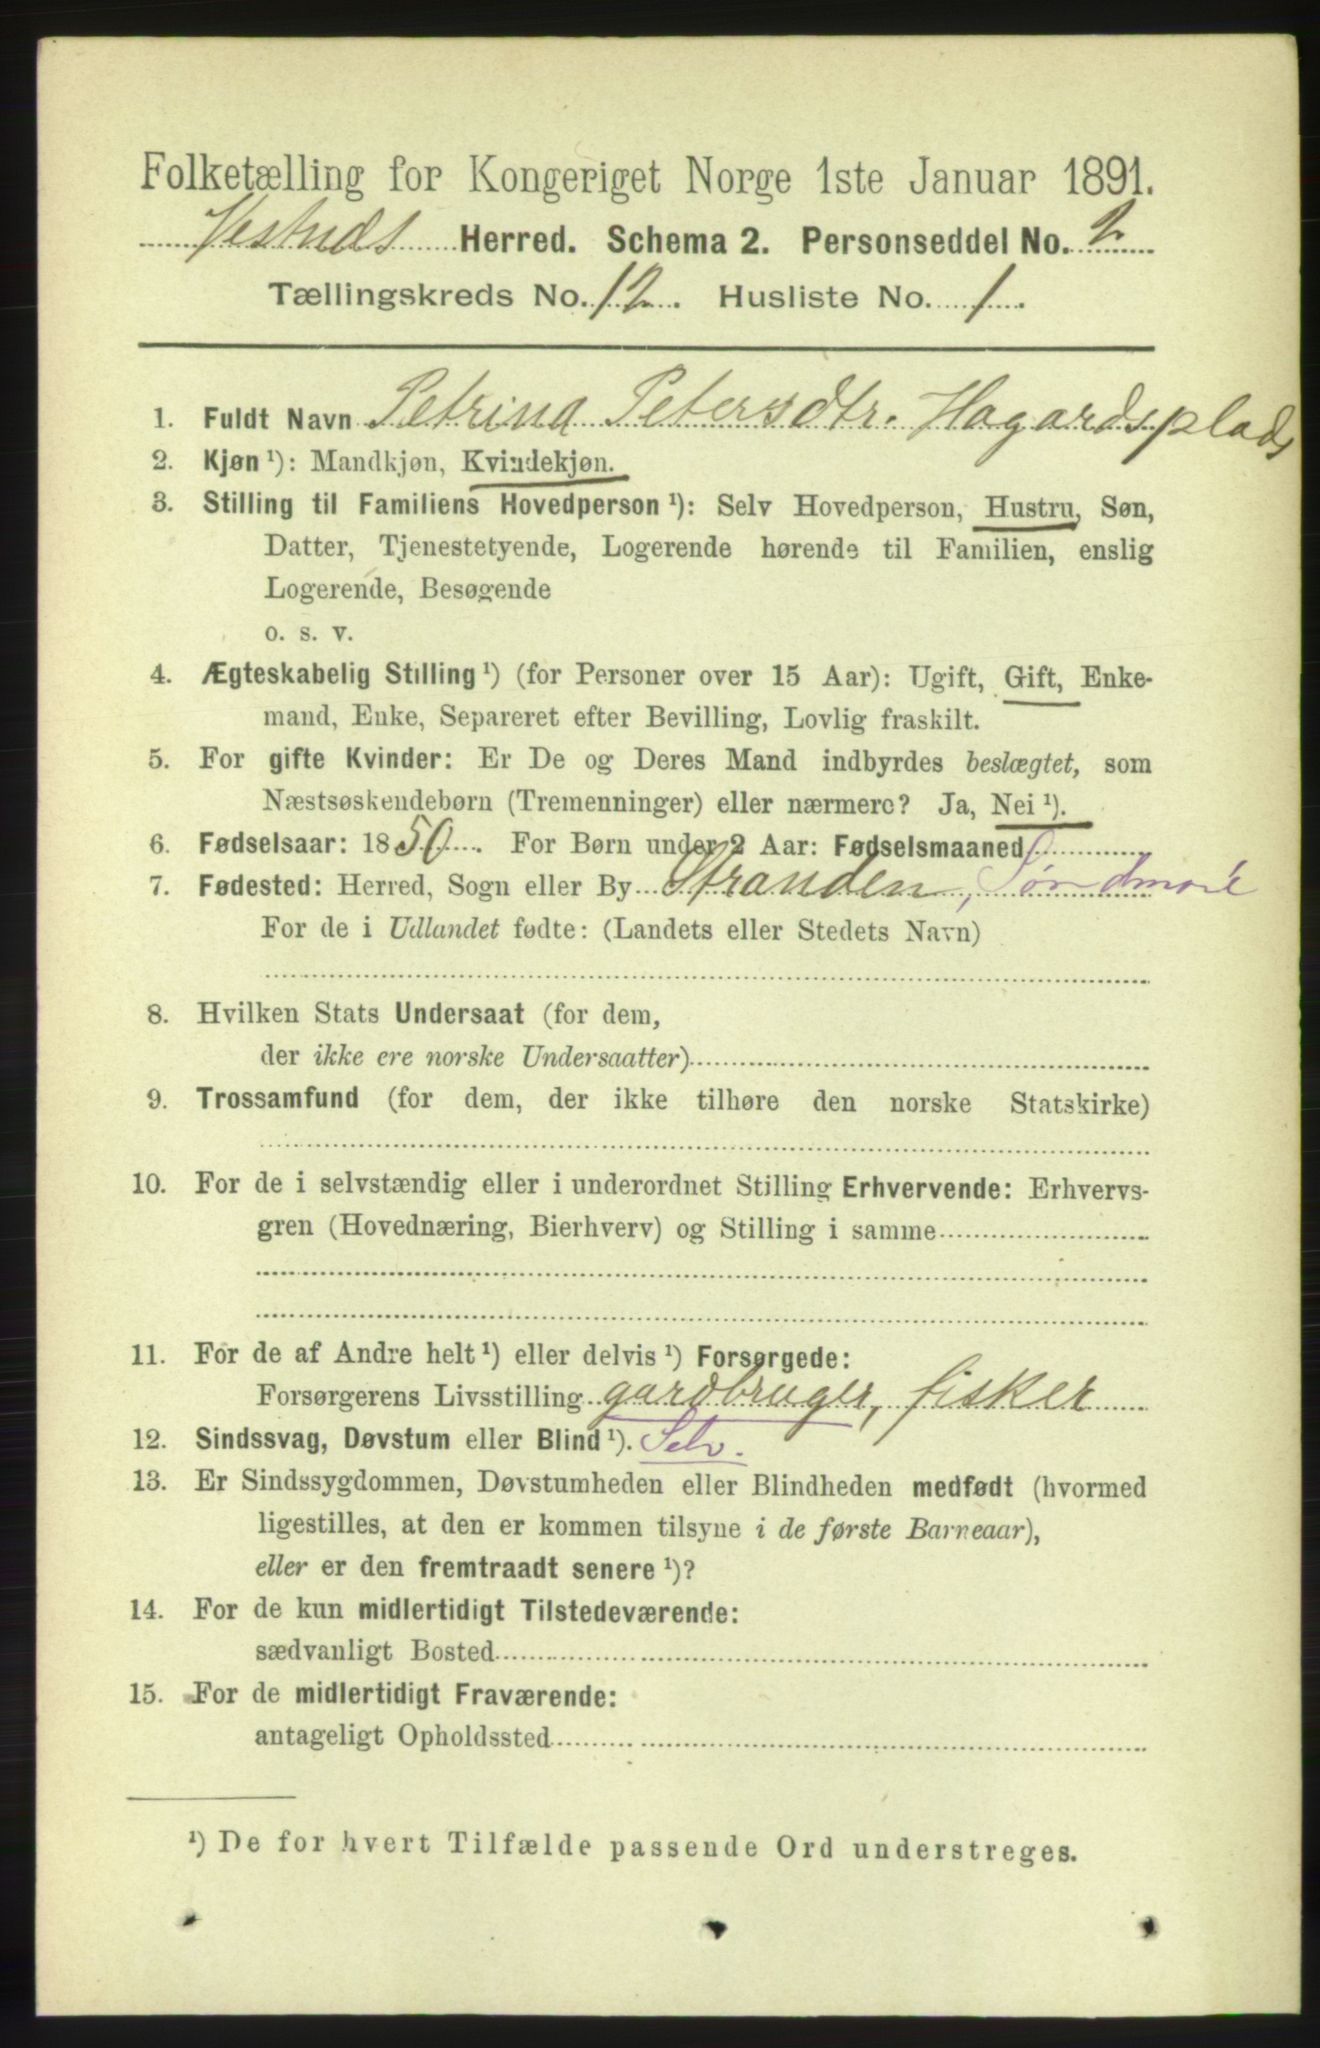 Folketælling for Kongeriget Norge 1ste Januar 1891.
Vestnes Herred. Schema 2. Personseddel No. 2
Tællingskreds No. 12. Husliste No. 1.
1. Fuldt Navn Petrina Petersdtr. Hagardsplads
2. Kjøn ¹): Mandkjøn, Kvindekjøn.
3. Stilling til Familiens Hovedperson ¹): Selv Hovedperson, Hustru, Søn,
Datter, Tjenestetyende, Logerende hørende til Familien, enslig
Logerende, Besøgende
o. s. v.
4. Ægteskabelig Stilling ¹) (for Personer over 15 Aar): Ugift, Gift, Enke-
mand, Enke, Separeret efter Bevilling, Lovlig fraskilt.
5. For gifte Kvinder: Er De og Deres Mand indbyrdes beslægtet, som
Næstsøskendebørn (Tremenninger) eller nærmere? Ja, Nei ¹).
6. Fødselsaar: 1850. For Børn under 2 Aar: Fødselsmaaned
7. Fødested: Herred, Sogn eller By Stranden, Søndmøre
For de i Udlandet fødte: (Landets eller Stedets Navn)
8. Hvilken Stats Undersaat (for dem,
der ikke ere norske Undersaatter)
9. Trossamfund (for dem, der ikke tilhøre den norske Statskirke)
10. For de i selvstændig eller i underordnet Stilling Erhvervende: Erhvervs-
gren (Hovednæring, Bierhverv) og Stilling i samme
11. For de af Andre helt ¹) eller delvis ¹) Forsørgede:
Forsørgerens Livsstilling gardbruger, fisker
12. Sindssvag, Døvstum eller Blind ¹). Selv.
13. Er Sindssygdommen, Døvstumheden eller Blindheden medfødt (hvormed
ligestilles, at den er kommen tilsyne i de første Barneaar),
eller er den fremtraadt senere ¹)?
14. For de kun midlertidigt Tilstedeværende:
sædvanligt Bosted
15. For de midlertidigt Fraværende:
antageligt Opholdssted
¹) De for hvert Tilfælde passende Ord understreges.